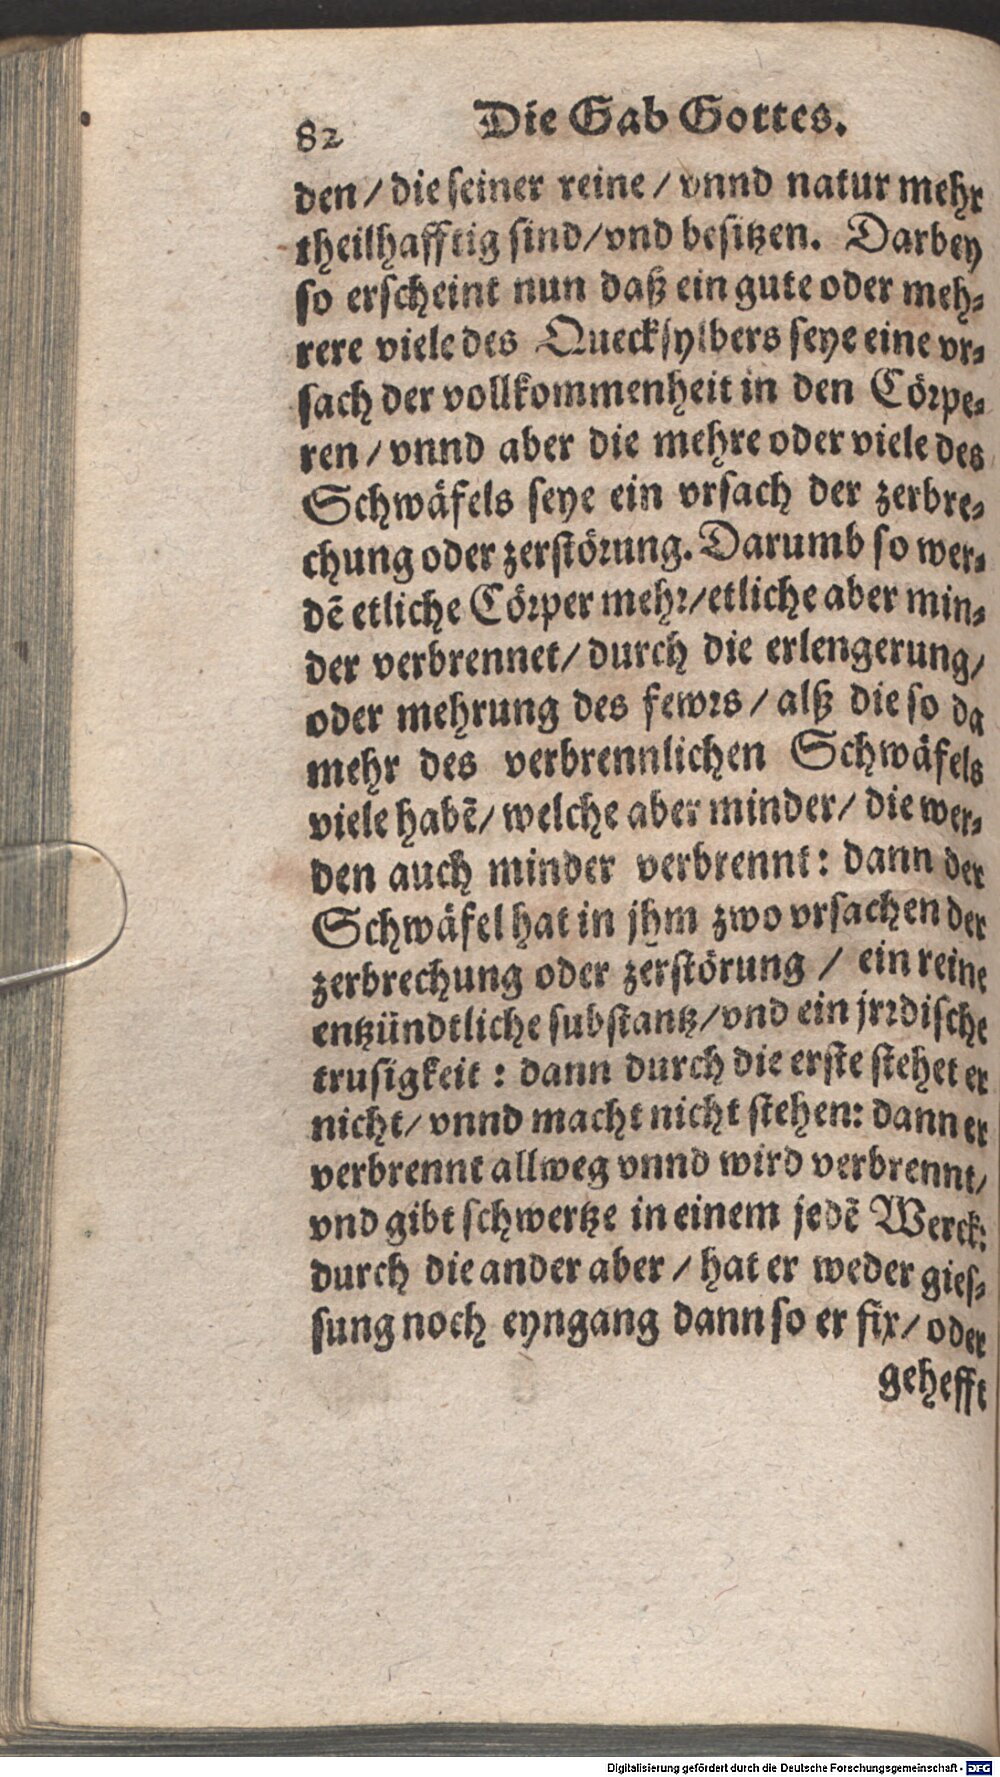 82 Die Gab Gottes.
den / die seiner reine / vnnd natur mehr
theilhafftig sind/vnd besitzen. Darbey
so erscheint nun daß ein gute oder meh⸗
rere viele des Quecksylbers seye eine vr⸗
sach der vollkommenheit in den Cörpe⸗
ren / vnnd aber die mehre oder viele des
Schwäfels seye ein vrsach der zerbre⸗
chung oder zerstörung. Darumb so wer⸗
dē etliche Cörper mehr/etliche aber min⸗
der verbrennet/ durch die erlengerung/
oder mehrung des fewrs / alß die so da
mehr des verbrennlichen Schwäfels
viele habē/ welche aber minder/ die wer⸗
den auch minder verbrennt: dann der
Schwäfel hat in jhm zwo vrsachen der
zerbrechung oder zerstörung / ein reine
entzündtliche substantz/vnd ein jrrdische
trusigkeit : dann durch die erste stehet er
nicht/ vnnd macht nicht stehen: dann er
verbrennt allweg vnnd wird verbrennt/
vnd gibt schwertze in einem jedē Werck:
durch die ander aber / hat er weder gies⸗
sung noch eyngang dann so er fix/ oder
gehefft
Digitalisierung gefördert durch die Deutsche Forschungsgemeinschaft - DFG